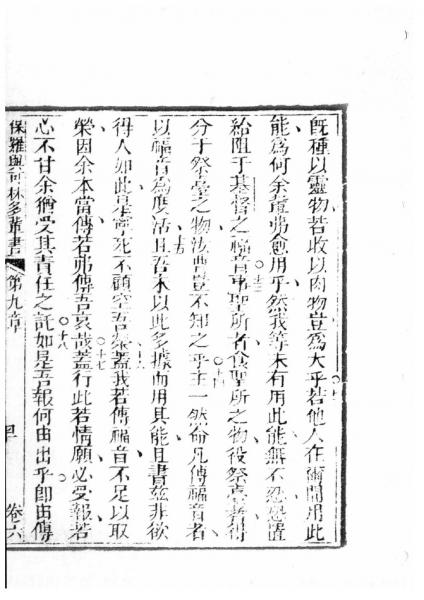 旣種以靈物若收以肉物豈爲大乎若他人在爾間用此
能爲何余輩弗愈用乎然我等未有用此能無不忍恐置
給阻于基督之福音事聖所者食聖所之物役祭臺者得
分于祭臺之物汝曹豈不知之乎主一然命凡傳福音者
以福音爲度活且吾未以此多據而用其能且書玆非欲
得人如此是寧死不願空吾榮蓋我若傳福音不足以取
榮因余本當傳若弗傳吾哀哉蓋行此若情願必受報若
心不甘余猶受其責任之託如是吾報何由出乎卽由傳
保羅與 林多輩書 第九章 卷六